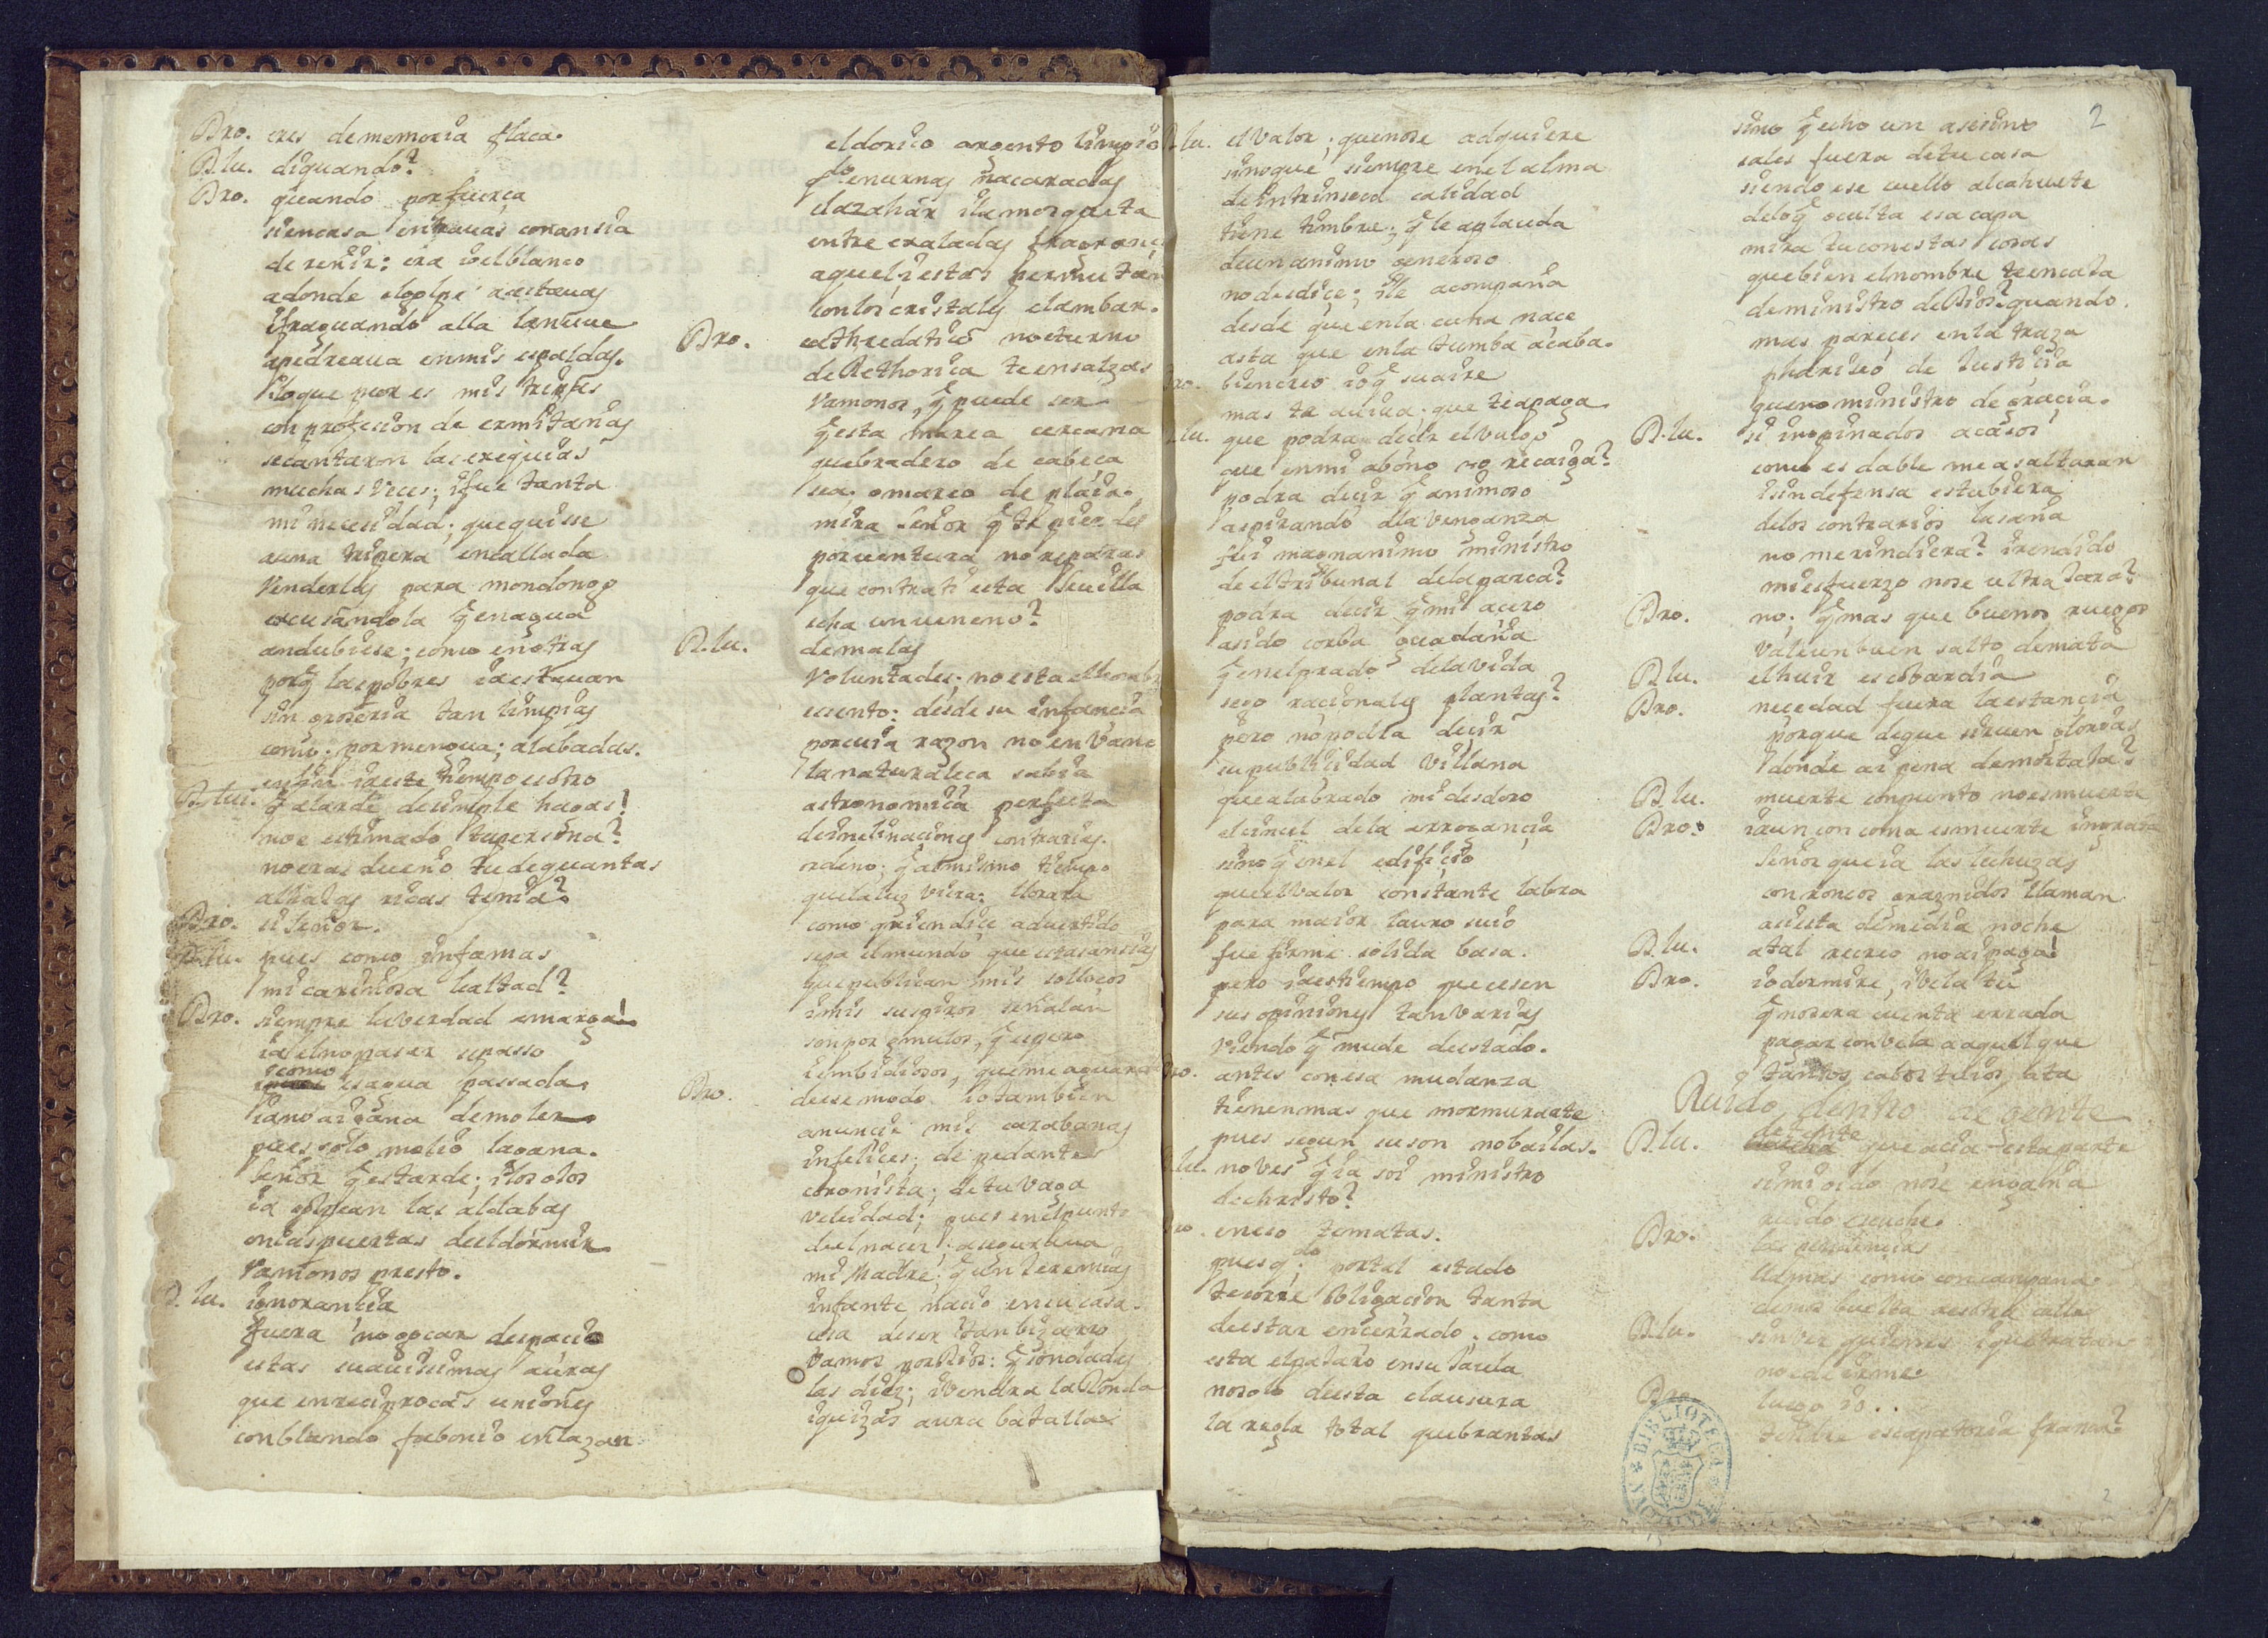 Bro. eres de memoria flaca.
D. lu. di quando?
Bro. quando por fuerça
si en casa entrauas con ansia
de reñir: era io el blanco
adonde el golpe asestauas
i fraguando alla la nuue
apedreaua en mis espaldas.
i lo que peor es mis tripas
con profecion de ermitañas
se cantaron las exequias
muchas veces; i fue tanta
mi necesidad; que quisse
a una tripera encallada
venderlas para mondongo
escusandola q̃ en agua
andubiese; como en otras
porq̃ las pobres ia estauan
sin groseria tan limpias
como; por mengua; alabadas.
D. lui. q̃ alarde de simple hagas!
no e estimado tu persona?
no eras dueño tu de quantas
alhajas ricas tenia?
Bro. si señor.
D. lu. pues como infamas
mi cariñosa lealtad?
Bro. siempre la verdad amarga!
ia el no paser se passo
como es agua passada
ia no ai gana de moler
pues solo molio la gana.
señor q̃ es tarde; i los ojos
ia golpean las aldabas
en las puertas de el dormir
vamonos presto.
D. lu. ignorancia
fuera no goçar despacio
estas suauissimas auras
que en reciprocas uniones
con blando fabonio enlazan
el dorico argento limpio
q̃do en urnas nacaradas
el azahar i la mosqueta
entre exaladas fragranci
aquel i estas permutan
con los cristales el ambar.
Bro. cathredatico nocturno
de Rethorica te ensalzas
vamonos, q̃ puede ser
q̃ esta marea cercana
quebradero de cabeça
sea. o mareo de plaia.
mira señor q̃ te pierdes
por uentura no reparas
que contra ti esta Seuilla
echa un ueneno?
D. lu. de malas
voluntades; no esta el hombr
esento: desde su infancia
por cuia razon no en vano
la naturaleça sabia
astronomica perfecta
de inclinaciones contrarias.
ordeno; q̃ al mismo tiempo
que la luz viera: llorara
como quien dice aduertido
sepa el mundo que estas ansias
que publican mis solloços
i mis suspiros señalan
son por emulos, q̃ espero
i embidiosos, que me aguarda
Bro. de ese modo io tambien
anuncie mis carabanas
infelices; de pedante
coronista; de tu vaga
veleidad; pues en el punto
de el nacer; aseguraua
mi Madre; q̃ un Jeremias
infante nacio en su casa.
cesa de ser tan bizarro
vamos por Dios: q̃ son dadas
las diez; i vendra la Ronda
i quizas aura batalla
D. lu. el valor; que no se adquiere
sino que siempre en el alma
de intrinseca calidad
tiene timbre; q̃ le aplauda
de un animo generoso
no desdice; i le acompaña
desde que en la cuna nace
asta que en la tumba acaba.
Bro. bien creo io q̃ su aire
mas te auiua que te apaga.
D. lu. que podra decir el vulgo
que en mi abono no recaiga?
podra decir q̃ animoso
aspirando a la venganza
fui magnanimo ministro
de el tribunal de la parca?
podra decir q̃ mi acero
a sido corba guadaña
q̃ en el prado de la vida
sego racionales plantas?
pero no podra decir
su publicidad villana
que a labrado mi desdoro
el cincel de la arrogancia
sino q̃ en el edificio
que el valor constante labra
para maior lauro suio
fue firme solida basa.
pero ia es tiempo que cesen
sus opiniones tan varias
viendo q̃ mude de estado.
Bro. antes con esa mudanza
tienen mas que mormurarte
pues segun su son no bailas.
D. lu. no ves q̃ ia soi ministro
de christo?
Bro. en eso te matas.
pues q.do por tal estado
te corre obligacion tanta
de estar encerrado. como
esta el pajaro en su jaula
no solo de esta clausura
la regla total quebrantas
2
sino q̃ echo un asesino
sales fuera de tu casa
siendo ese cuello alcahuete
de lo q̃ oculta esa capa
mira tu con estas cosas
que bien el nombre te encaja
de ministro de Dios? quando
mas pareces en la traza
phariseo de Justicia
que no ministro de gracia.
D. lu. si inopinados acasos
como es dable me asaltaran
i sin defensa estubiera
de los contrarios la saña
no me rindiera? i rendido
mi esfuerzo no se ultrajara?
Bro. no; q̃ mas que buenos ruegos
vale un buen salto de mata
D. lu. el huir es cobardia
Bro. necedad fuera la estancia
porque de que siruen glorias
donde ai pena de mortaja?
D. lu. muerte con punto no es muerte
Bro. i aun con coma es muerte ingrata
señor que ia las lechuzas
con roncos graznidos llaman
a siesta de media noche
D. lu. a tal recreo no ai paga!
Bro. io dormire, i vela tu
q̃ no sera cuenta errada
pagar con vela a aquel que
tantos cabos
Ruido dentro de gente
D. lu. detente que acia esta parte
si mi oido no se engaña
ruido escuche.
Bro. las pendencias
llamas como con campana.
demos buelta a esotra calle
D. lu. sin ver quienes i que tratan
no e de irme.
Bro. luego io..
tendre escapatoria franca?
BIBLIOTECA NACIONAL
2